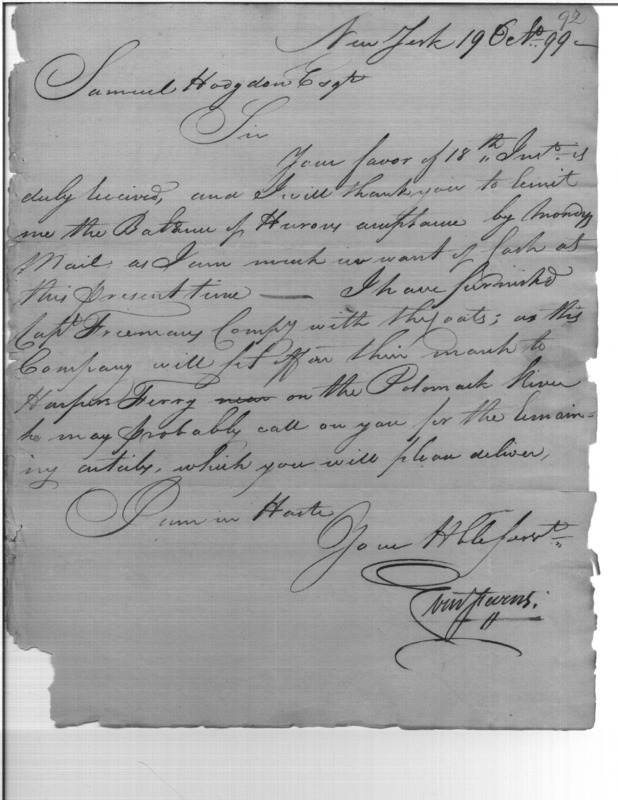 92
New York 19 Octr. 99
Samuel Hodgdon Esqr
Sir
Your favor of 18th Inst. is
duly receivd, and I will thank you to remit
me the Balance of Hurons acceptance by Mondys
Mail as I am much in want of Cash at
this present time — I have furnishd
Capt Freemans Compy with the Coats; as this
Company will set off on their march to
Harpers Ferry near on the Potomack River
he may probably call on you for the remain-
ing articls, which you will please deliver,
I am in Haste
Your Hble Servt